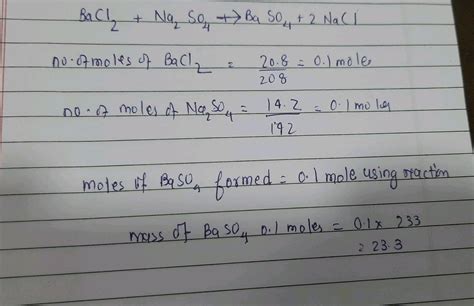 BaCl2 + Na2 SO4 → Ba SO4 + 2 NaCl
no. of moles of BaCl2 = 20.8/208 = 0.1 mole
no. of moles of Na2SO4 = 14.2/142 = 0.1 moles
moles of BaSO4 formed = 0.1 mole using reaction
mass of BaSO4 0.1 moles = 0.1 x 233
= 23.3